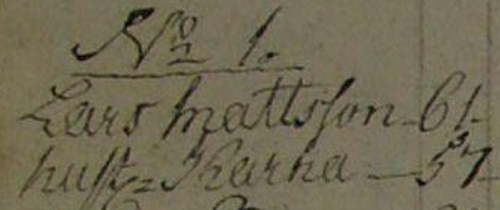 No 1.
Lars Mattsson - 61
hust = Karna - 57